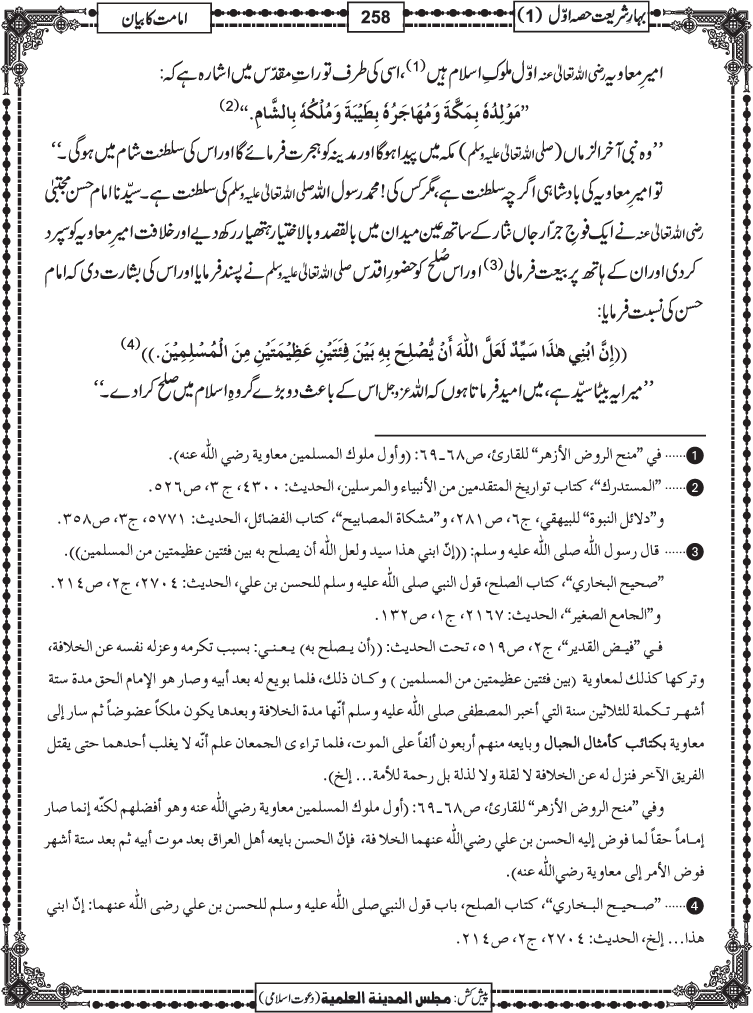 بہارِشریعت حصہ اوّل (1)
258
امامت کا بیان
امیرِ معاویہ رضی اللہ تعالیٰ عنہ اوّل ملوکِ اسلام ہیں (1)، اسی کی طرف توراتِ مقدّس میں اشارہ ہے کہ:
”مَوْلِدُهٗ بِمَكَّةَ وَمُهَاجَرُهٗ بِطَيْبَةَ وَمُلْكُهٗ بِالشَّامِ.“ (2)
’’وہ نبی آخر الزماں (صلی اللہ تعالیٰ علیہ وسلم) مکہ میں پیدا ہوگا اور مدینہ کو ہجرت فرمائے گا اور اس کی سلطنت شام میں ہوگی۔‘‘
تو امیرِ معاویہ کی بادشاہی اگرچہ سلطنت ہے، مگر کس کی! محمد رسول اللہ صلی اللہ تعالیٰ علیہ وسلم کی سلطنت ہے۔ سیّدنا امام حسن مجتبیٰ
رضی اللہ تعالیٰ عنہ نے ایک فوجِ جرّار جاں نثار کے ساتھ عین میدان میں بالقصد و بالاختیار ہتھیار رکھ دیے اور خلافت امیرِ معاویہ کو سپرد
کر دی اور ان کے ہاتھ پر بیعت فرمالی (3) اور اس صُلح کو حضورِ اقدس صلی اللہ تعالیٰ علیہ وسلم نے پسند فرمایا اور اس کی بشارت دی کہ امام
حسن کی نسبت فرمایا:
((إِنَّ ابْنِي هٰذَا سَيِّدٌ لَعَلَّ اللّٰهَ أَنْ يُّصْلِحَ بِهِ بَيْنَ فِئَتَيْنِ عَظِيْمَتَيْنِ مِنَ الْمُسْلِمِيْنَ.)) (4)
’’میرا یہ بیٹا سیّد ہے، میں امید فرماتا ہوں کہ اللہ عزوجل اس کے باعث دو بڑے گروہِ اسلام میں صلح کرا دے۔‘‘
1 ...... في ”منح الروض الأزهر“ للقارئ، ص٦٨ـ٦٩: (وأول ملوك المسلمين معاوية رضي الله عنه).
2 ...... ”المستدرك“، كتاب تواريخ المتقدمين من الأنبياء والمرسلين، الحديث: ٤٣٠٠، ج٣، ص٥٢٦.
و”دلائل النبوة“ للبيهقي، ج٦، ص٢٨١، و”مشكاة المصابيح“، كتاب الفضائل، الحديث: ٥٧٧١، ج٣، ص٣٥٨.
3 ...... قال رسول الله صلى الله عليه وسلم: ((إنّ ابني هذا سيد ولعل الله أن يصلح به بين فئتين عظيمتين من المسلمين)).
”صحيح البخاري“، كتاب الصلح، قول النبي صلى الله عليه وسلم للحسن بن علي، الحديث: ٢٧٠٤، ج٢، ص٢١٤.
و”الجامع الصغير“، الحديث: ٢١٦٧، ج١، ص١٣٢.
في ”فيض القدير“، ج٢، ص٥١٩، تحت الحديث: ((أن يصلح به) يعني: بسبب تكرمه وعزله نفسه عن الخلافة،
وتركها كذلك لمعاوية (بين فئتين عظيمتين من المسلمين) وكان ذلك، فلما بويع له بعد أبيه وصار هو الإمام الحق مدة ستة
أشهر تكملة للثلاثين سنة التي أخبر المصطفى صلى الله عليه وسلم أنّها مدة الخلافة وبعدها يكون ملكاً عضوضاً ثم سار إلى
معاوية بكتائب كأمثال الجبال وبايعه منهم أربعون ألفاً على الموت، فلما تراءى الجمعان علم أنّه لا يغلب أحدهما حتى يقتل
الفريق الآخر فنزل له عن الخلافة لا لقلة ولا لذلة بل رحمة للأمة... إلخ).
وفي ”منح الروض الأزهر“ للقارئ، ص٦٨ـ٦٩: (أول ملوك المسلمين معاوية رضي الله عنه وهو أفضلهم لكنّه إنما صار
إماماً حقاً لما فوض إليه الحسن بن علي رضي الله عنهما الخلافة، فإنّ الحسن بايعه أهل العراق بعد موت أبيه ثم بعد ستة أشهر
فوض الأمر إلى معاوية رضي الله عنه).
4 ...... ”صحيح البخاري“، كتاب الصلح، باب قول النبي صلى الله عليه وسلم للحسن بن علي رضى الله عنهما: إنّ ابني
هذا... إلخ، الحديث: ٢٧٠٤، ج٢، ص٢١٤.
پیش کش: مجلس المدينة العلمية (دعوتِ اسلامی)